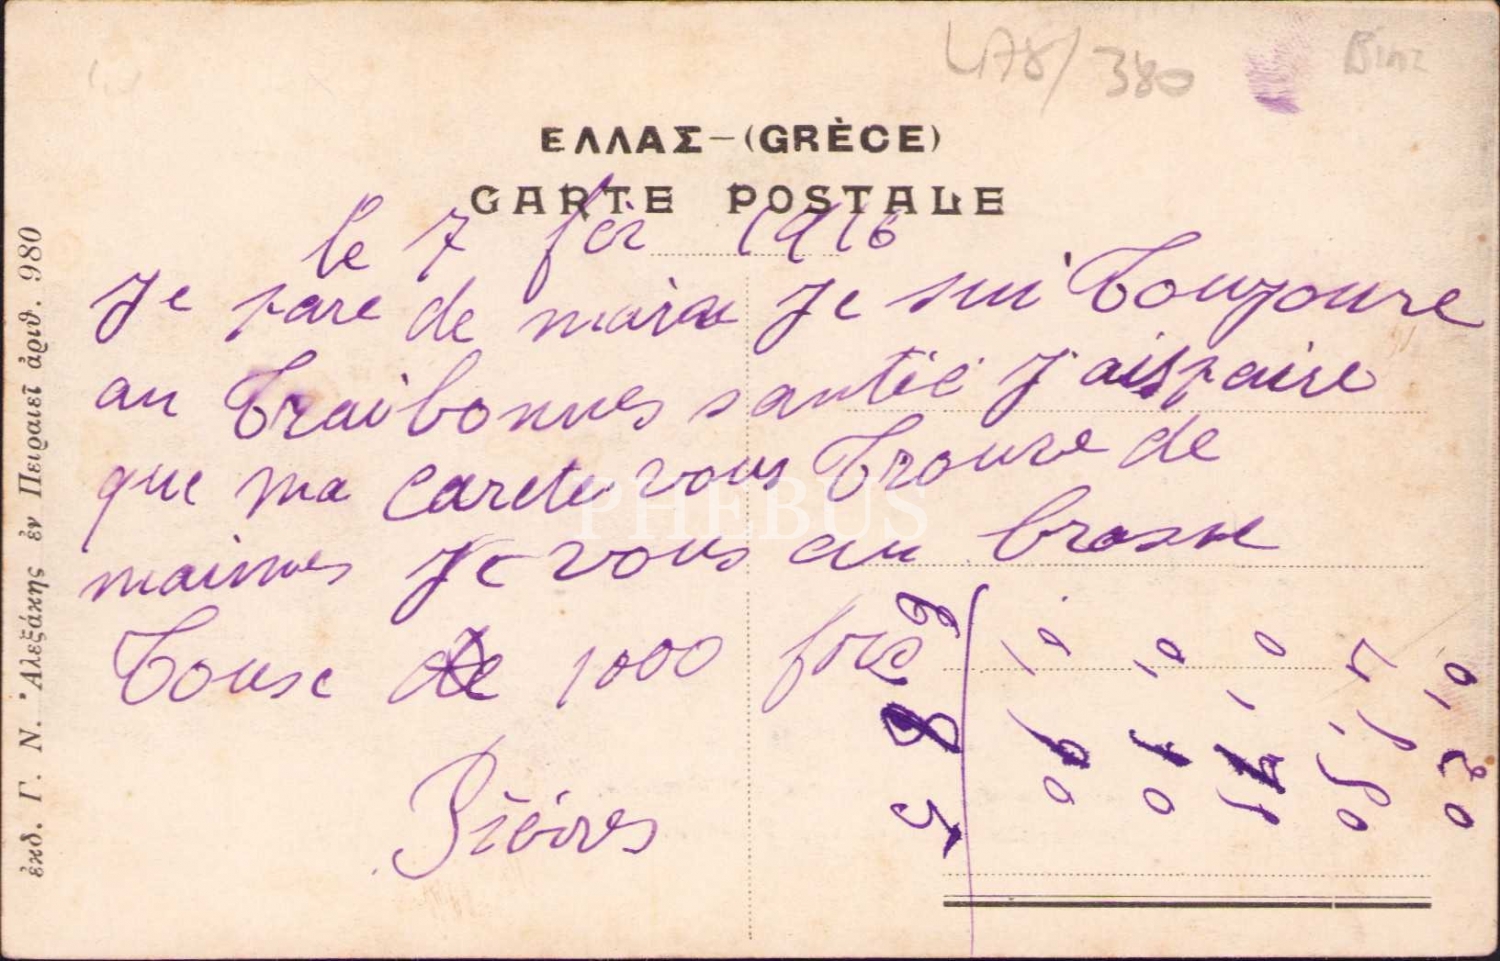 478/380
ΕΛΛΑΣ-(GRÈCE)
CARTE POSTALE
le 7 fév 1916
Je pare de maraa Je sui Toujoure
au Traibonnes santié J'aispaire
que ma carete vous Trouve de
maimes Je vous au brasse
Touse de 1000 fois
Pièires
ἐκδ. Γ. Ν. Ἀλεξάκης ἐν Πειραιεῖ ἀριθ. 980
PHEBUS